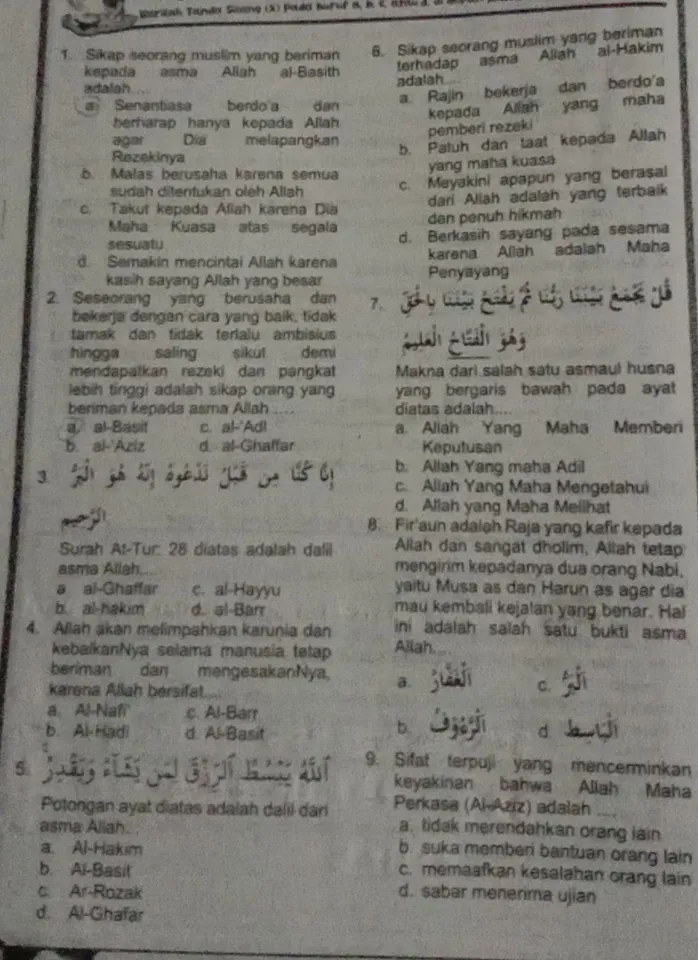 Berilah Tanda Silang (X) Pada huruf a, b, c,
1. Sikap seorang muslim yang beriman
kepada asma Allah al-Basith
adalah....
a. Senantiasa berdo'a dan
berharap hanya kepada Allah
agar Dia melapangkan
Rezekinya
b. Malas berusaha karena semua
sudah ditentukan oleh Allah
c. Takut kepada Allah karena Dia
Maha Kuasa atas segala
sesuatu
d. Semakin mencintai Allah karena
kasih sayang Allah yang besar
2. Seseorang yang berusaha dan
bekerja dengan cara yang baik, tidak
tamak dan tidak terlalu ambisius
hingga saling sikut demi
mendapatkan rezeki dan pangkat
lebih tinggi adalah sikap orang yang
beriman kepada asma Allah ....
a. al-Basit c. al-'Adl
b. al-'Aziz d. al-Ghaffar
3. إِنَّا كُنَّا مِن قَبْلُ نَدْعُوهُ إِنَّهُ هُوَ الْبَرُّ
الرَّحِيمُ
Surah At-Tur: 28 diatas adalah dalil
asma Allah....
a. al-Ghaffar c. al-Hayyu
b. al-hakim d. al-Barr
4. Allah akan melimpahkan karunia dan
kebaikanNya selama manusia tetap
beriman dan mengesakanNya,
karena Allah bersifat....
a. Al-Nafi' c. Al-Barr
b. Al-Hadi d. Al-Basit
5. اَللَّهُ يَبْسُطُ الرِّزْقَ لِمَن يَشَآءُ وَيَقْدِرُ
Potongan ayat diatas adalah dalil dari
asma Allah...
a. Al-Hakim
b. Al-Basit
c. Ar-Rozak
d. Al-Ghafar
6. Sikap seorang muslim yang beriman
terhadap asma Allah al-Hakim
adalah....
a. Rajin bekerja dan berdo'a
kepada Allah yang maha
pemberi rezeki
b. Patuh dan taat kepada Allah
yang maha kuasa
c. Meyakini apapun yang berasal
dari Allah adalah yang terbaik
dan penuh hikmah
d. Berkasih sayang pada sesama
karena Allah adalah Maha
Penyayang
7. قُلْ يَجْمَعُ بَيْنَنَا رَبُّنَا ثُمَّ يَفْتَحُ بَيْنَنَا بِالْحَقِّ
وَهُوَ الْفَتَّاحُ الْعَلِيمُ
Makna dari salah satu asmaul husna
yang bergaris bawah pada ayat
diatas adalah....
a. Allah Yang Maha Memberi
Keputusan
b. Allah Yang maha Adil
c. Allah Yang Maha Mengetahui
d. Allah yang Maha Melihat
8. Fir'aun adalah Raja yang kafir kepada
Allah dan sangat dholim, Allah tetap
mengirim kepadanya dua orang Nabi,
yaitu Musa as dan Harun as agar dia
mau kembali kejalan yang benar. Hal
ini adalah salah satu bukti asma
Allah....
a. الْغَفَّارُ c. الْبَرُّ
b. الرَّءُوفُ d. الْبَاسِط
9. Sifat terpuji yang mencerminkan
keyakinan bahwa Allah Maha
Perkasa (Al-Aziz) adalah ....
a. tidak merendahkan orang lain
b. suka memberi bantuan orang lain
c. memaafkan kesalahan orang lain
d. sabar menerima ujian